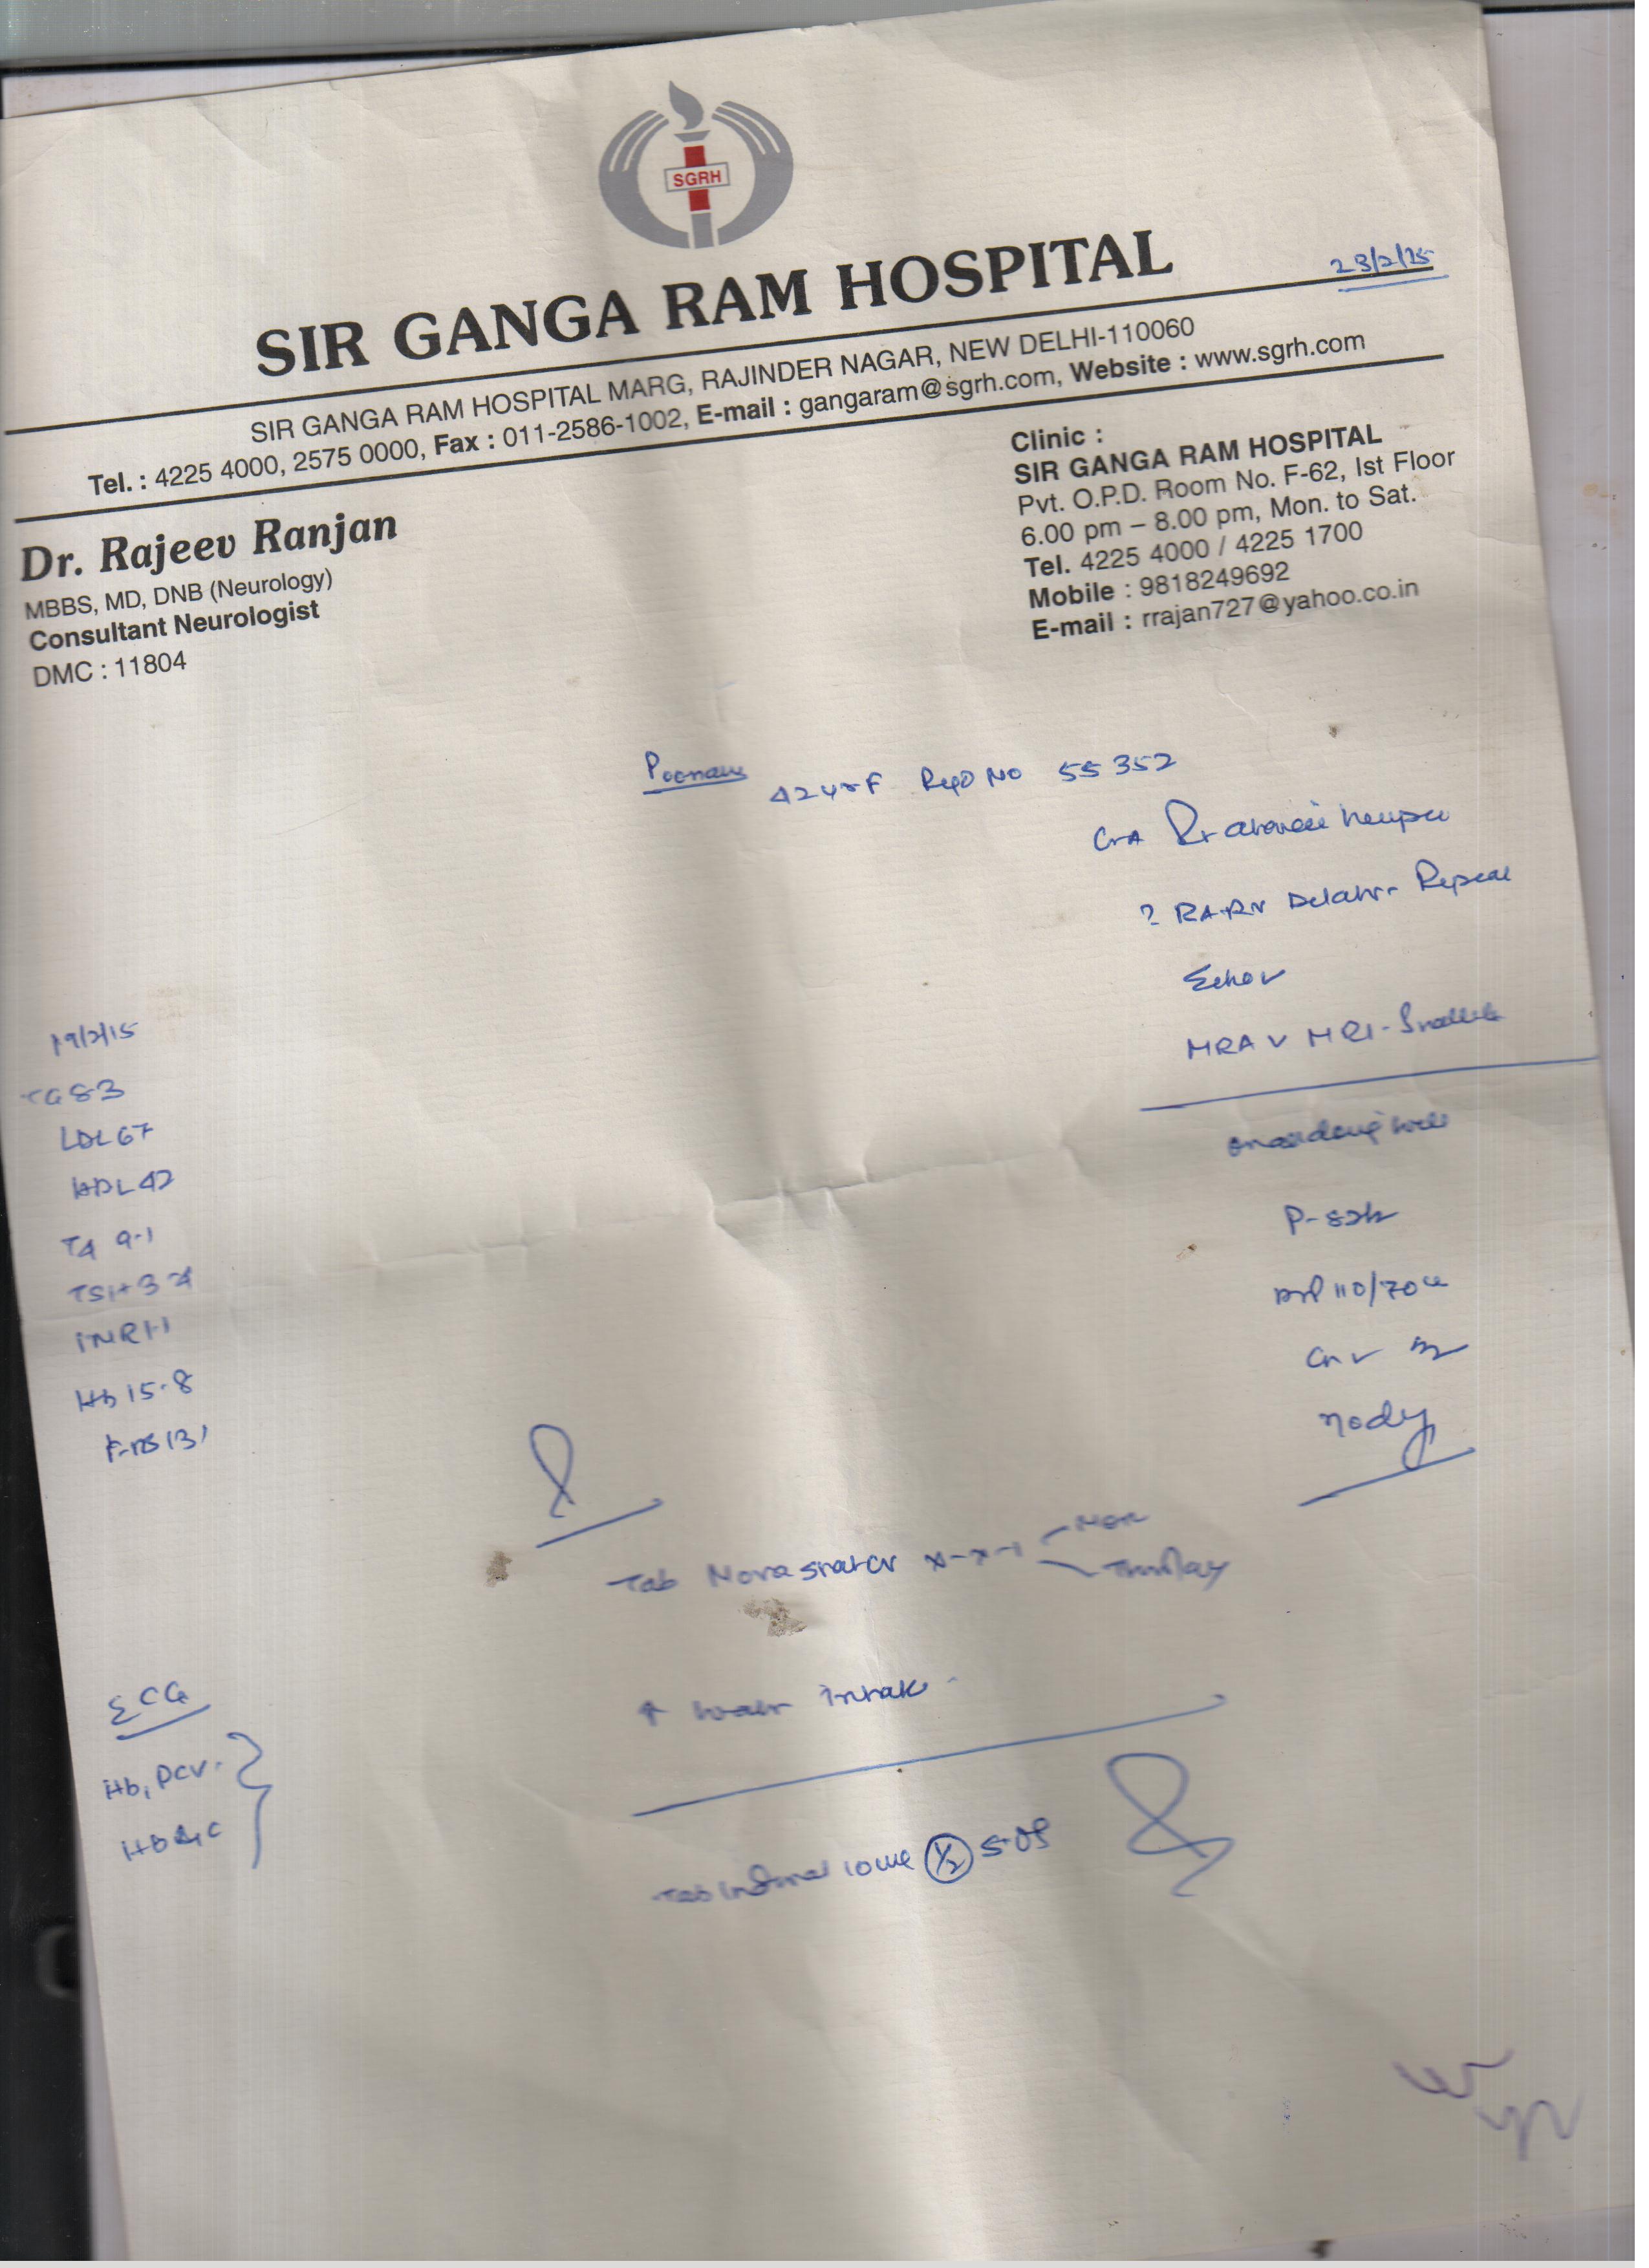 SGRH
SIR GANGA RAM HOSPITAL
23/2/15
SIR GANGA RAM HOSPITAL MARG, RAJINDER NAGAR, NEW DELHI-110060
Tel. : 4225 4000, 2575 0000, Fax : 011-2586-1002, E-mail : gangaram@sgrh.com, Website : www.sgrh.com
Dr. Rajeev Ranjan
MBBS, MD, DNB (Neurology)
Consultant Neurologist
DMC : 11804
Clinic :
SIR GANGA RAM HOSPITAL
Pvt. O.P.D. Room No. F-62, Ist Floor
6.00 pm – 8.00 pm, Mon. to Sat.
Tel. 4225 4000 / 4225 1700
Mobile : 9818249692
E-mail : rrajan727@yahoo.co.in
Poonam 42yrF Regd No 55352
CVA Rt
? Repeat
Echo
MRA MRI-
19/2/15
TG 83
LDL 67
HDL 42
T4 9.1
TSH 3.4
INR 1.1
Hb 15.8
P-82
BP 110/70
Tab x-x-1 Mon
Thursday
↑ water intake
ECG
Hb, PCV
HbA1C
Tab Inderal 10 mg 1/2 SOS